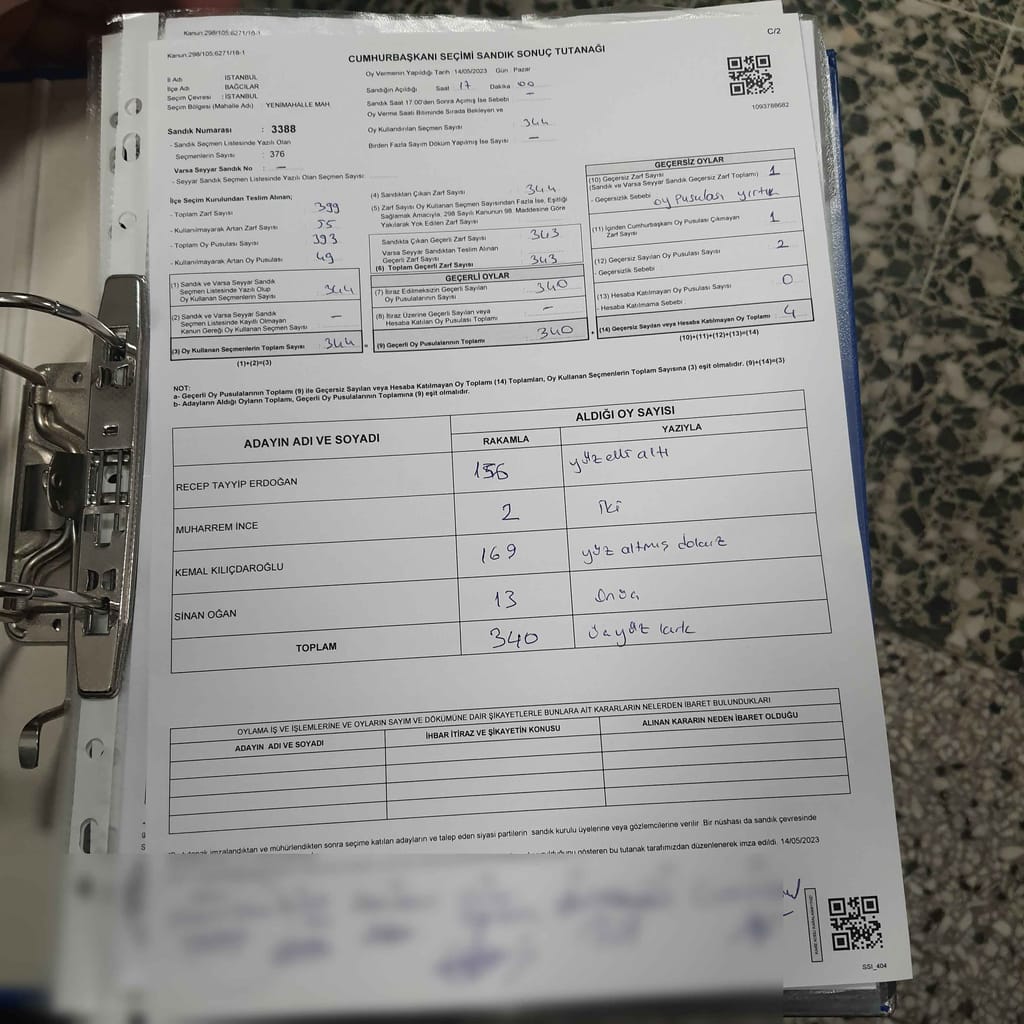 Kanun:298/105;6271/16-1
Kanun:298/105;6271/16-1
C/2
CUMHURBAŞKANI SEÇİMİ SANDIK SONUÇ TUTANAĞI
İl Adı İSTANBUL
İlçe Adı BAĞCILAR
Seçim Çevresi : İSTANBUL
Seçim Bölgesi (Mahalle Adı) : YENİMAHALLE MAH.
Oy Vermenin Yapıldığı Tarih :14/05/2023 Gün : Pazar
Sandığın Açıldığı Saat 17 Dakika 00
Sandık Saat 17:00'den Sonra Açılmış İse Sebebi —
Oy Verme Saati Bitiminde Sırada Bekleyen ve
Oy Kullandırılan Seçmen Sayısı 344
Birden Fazla Sayım Döküm Yapılmış İse Sayısı —
1093788682
Sandık Numarası : 3388
- Sandık Seçmen Listesinde Yazılı Olan
Seçmenlerin Sayısı : 376
Varsa Seyyar Sandık No : —
- Seyyar Sandık Seçmen Listesinde Yazılı Olan Seçmen Sayısı
İlçe Seçim Kurulundan Teslim Alınan;
- Toplam Zarf Sayısı 399
- Kullanılmayarak Artan Zarf Sayısı 55
- Toplam Oy Pusulası Sayısı 393
- Kullanılmayarak Artan Oy Pusulası 49
(1) Sandık ve Varsa Seyyar Sandık
Seçmen Listesinde Yazılı Olup
Oy Kullanan Seçmenlerin Sayısı 344
(2) Sandık ve Varsa Seyyar Sandık
Seçmen Listesinde Kayıtlı Olmayan
Kanun Gereği Oy Kullanan Seçmen Sayısı —
(3) Oy Kullanan Seçmenlerin Toplam Sayısı 344
(1)+(2)=(3)
(4) Sandıktan Çıkan Zarf Sayısı 344
(5) Zarf Sayısı Oy Kullanan Seçmen Sayısından Fazla İse, Eşitliği
Sağlamak Amacıyla, 298 Sayılı Kanunun 98. Maddesine Göre
Yakılarak Yok Edilen Zarf Sayısı
Sandıkta Çıkan Geçerli Zarf Sayısı 343
Varsa Seyyar Sandıktan Teslim Alınan
Geçerli Zarf Sayısı
(6) Toplam Geçerli Zarf Sayısı 343
GEÇERLİ OYLAR
(7) İtiraz Edilmeksizin Geçerli Sayılan
Oy Pusulasının Sayısı 340
(8) İtiraz Üzerine Geçerli Sayılan veya
Hesaba Katılan Oy Pusulası Toplamı —
= (9) Geçerli Oy Pusulalarının Toplamı 340
GEÇERSİZ OYLAR
(10) Geçersiz Zarf Sayısı
(Sandık ve Varsa Seyyar Sandık Geçersiz Zarf Toplamı) 1
- Geçersizlik Sebebi oy pusulası yırtık
(11) İçinden Cumhurbaşkanı Oy Pusulası Çıkmayan
Zarf Sayısı 1
(12) Geçersiz Sayılan Oy Pusulası Sayısı 2
- Geçersizlik Sebebi
(13) Hesaba Katılmayan Oy Pusulası Sayısı 0
- Hesaba Katılmama Sebebi
+ (14) Geçersiz Sayılan veya Hesaba Katılmayan Oy Toplamı 4
(10)+(11)+(12)+(13)=(14)
NOT:
a- Geçerli Oy Pusulalarının Toplamı (9) ile Geçersiz Sayılan veya Hesaba Katılmayan Oy Toplamı (14) Toplamları, Oy Kullanan Seçmenlerin Toplam Sayısına (3) eşit olmalıdır. (9)+(14)=(3)
b- Adayların Aldığı Oyların Toplamı, Geçerli Oy Pusulalarının Toplamına (9) eşit olmalıdır.
ADAYIN ADI VE SOYADI ALDIĞI OY SAYISI
RAKAMLA YAZIYLA
RECEP TAYYİP ERDOĞAN 156 yüz elli altı
MUHARREM İNCE 2 iki
KEMAL KILIÇDAROĞLU 169 yüz altmış dokuz
SİNAN OĞAN 13 Onüç
TOPLAM 340 üçyüz kırk
OYLAMA İŞ VE İŞLEMLERİNE VE OYLARIN SAYIM VE DÖKÜMÜNE DAİR ŞİKAYETLERLE BUNLARA AİT KARARLARIN NELERDEN İBARET BULUNDUKLARI
ADAYIN ADI VE SOYADI İHBAR İTİRAZ VE ŞİKAYETİN KONUSU ALINAN KARARIN NEDEN İBARET OLDUĞU
tutanak imzalandıktan ve mühürlendikten sonra seçime katılan adayların ve talep eden siyasi partilerin sandık kurulu üyelerine veya gözlemcilerine verilir. Bir nüshası da sandık çevresinde
gösteren bu tutanak tarafımızdan düzenlenerek imza edildi. 14/05/2023
SSI_404